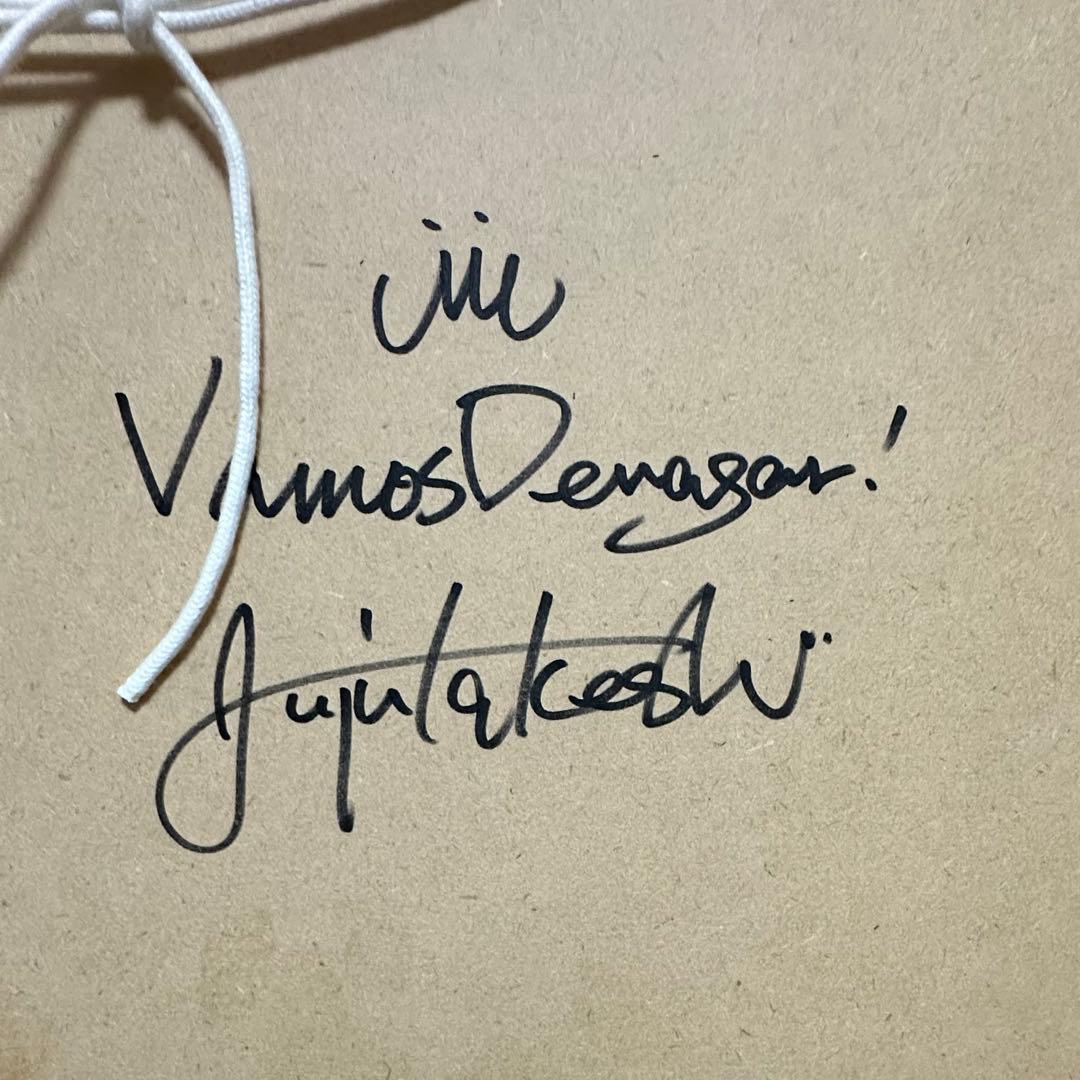 VamosDenagar!
JujuTakeshi